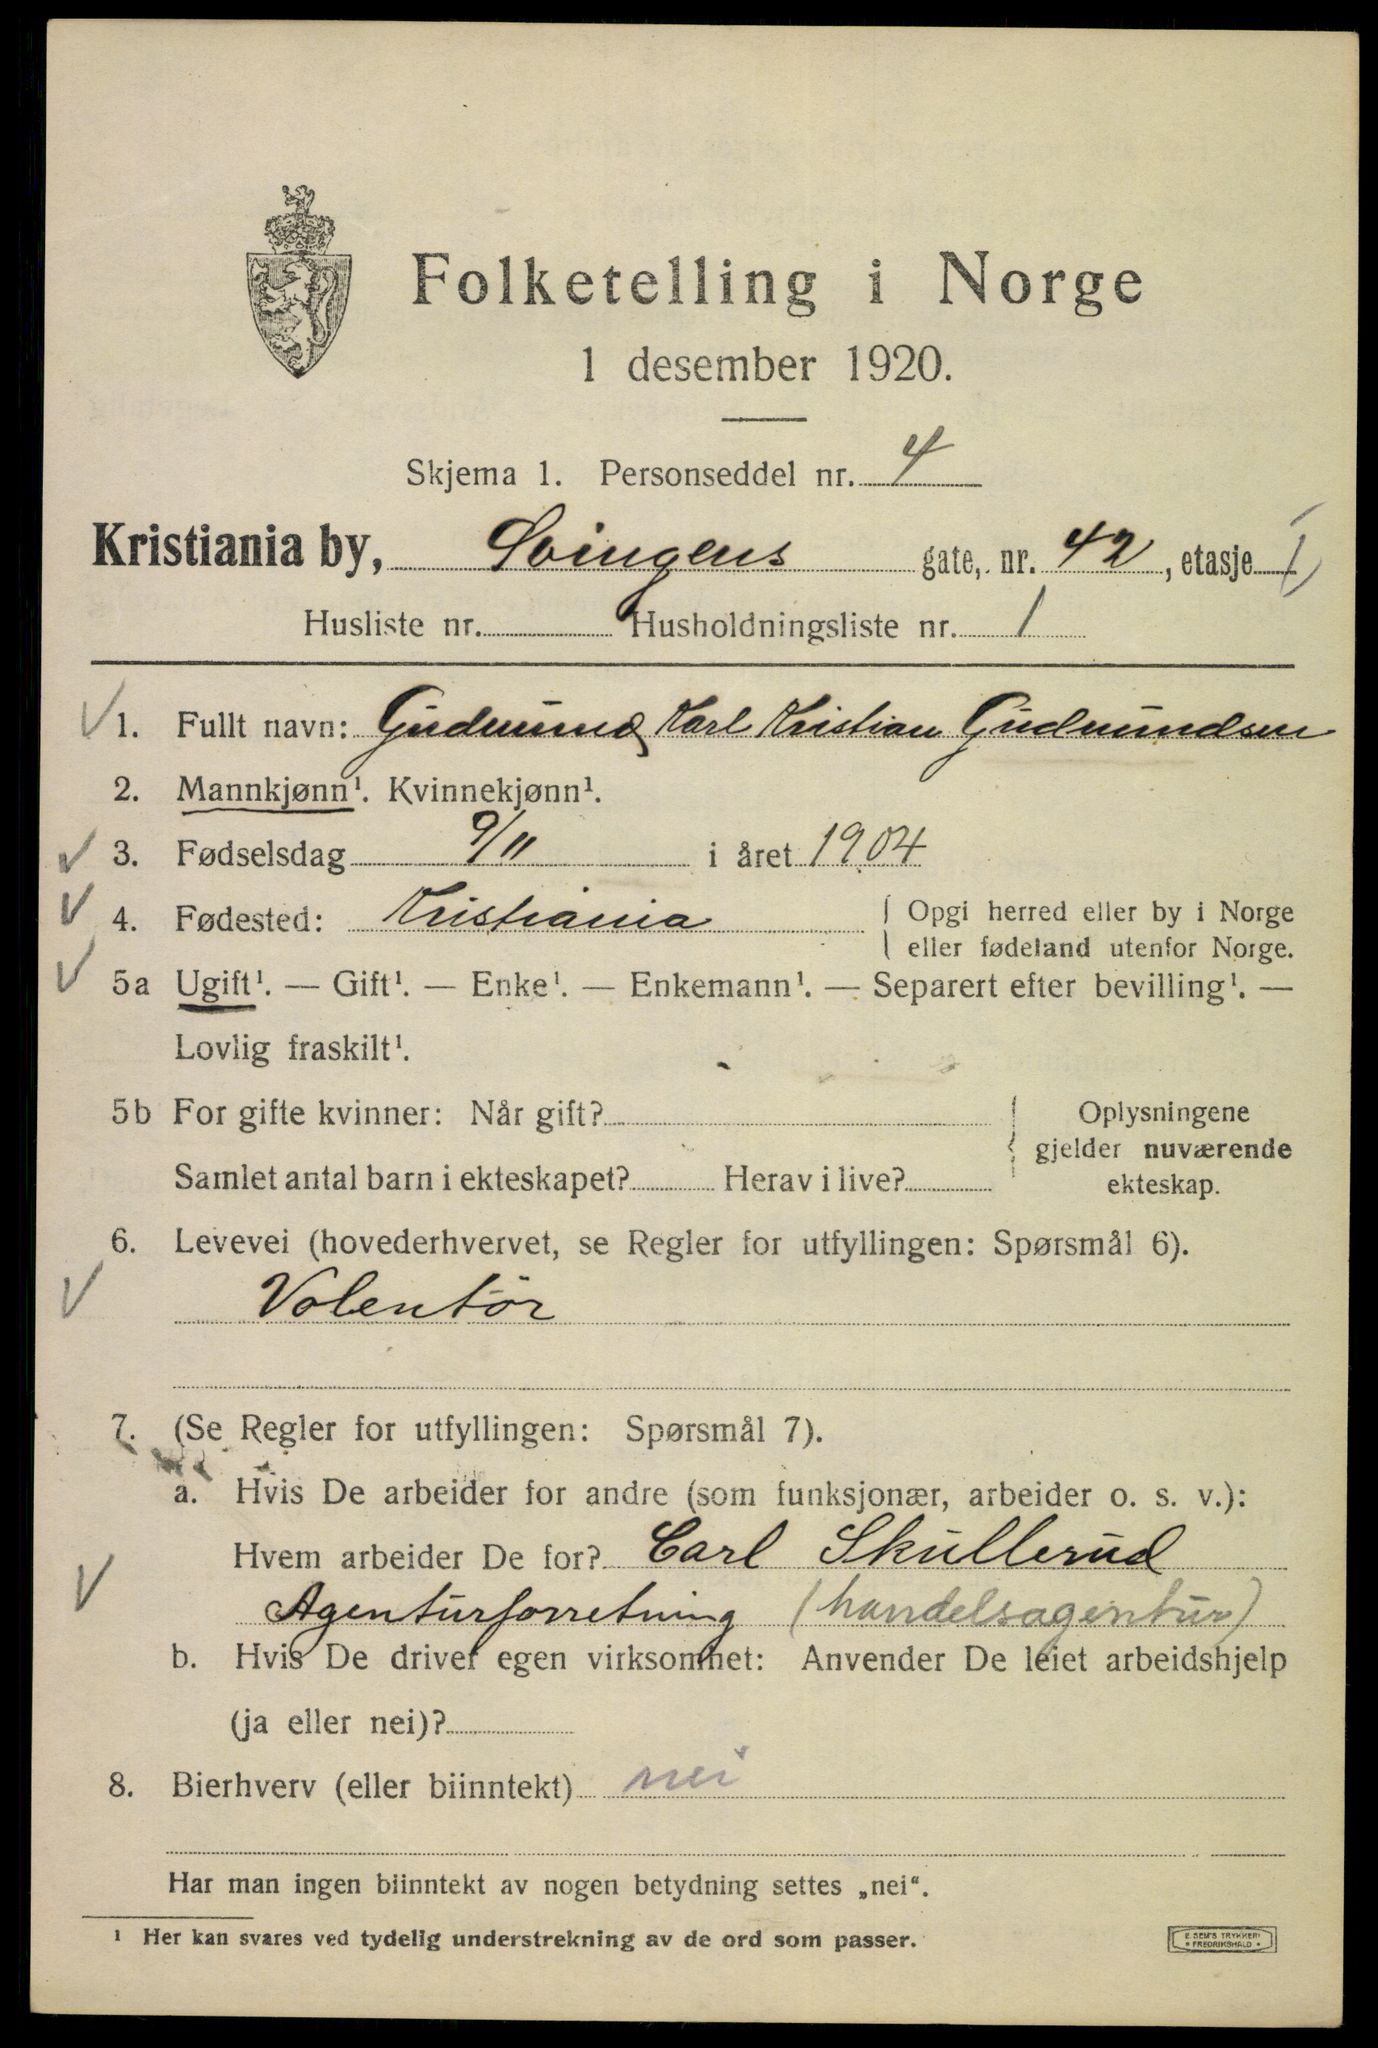 Folketelling i Norge
1 desember 1920.
Skjema 1. Personseddel nr. 4
Kristiania by, Svingens gate, nr. 42, etasje 1
Husliste nr. Husholdningsliste nr. 1
1. Fullt navn: Gudmund Karl Kristian Gudmundsen
2. Mannkjønn¹. Kvinnekjønn¹.
3. Fødselsdag 9/11 i året 1904
4. Fødested: Kristiania Opgi herred eller by i Norge
eller fødeland utenfor Norge.
5a Ugift¹. — Gift¹. — Enke¹. — Enkemann¹. — Separert efter bevilling¹. —
Lovlig fraskilt¹.
5b For gifte kvinner: Når gift? Oplysningene
gjelder nuværende
Samlet antal barn i ekteskapet? Herav i live? ekteskap.
6. Levevei (hovederhvervet, se Regler for utfyllingen: Spørsmål 6).
Volentör
7. (Se Regler for utfyllingen: Spørsmål 7).
a. Hvis De arbeider for andre (som funksjonær, arbeider o. s. v.):
Hvem arbeider De for? Carl Skullerud
Agenturforretning (handelsagentur)
b. Hvis De driver egen virksomhet: Anvender De leiet arbeidshjelp
(ja eller nei)?
8. Bierhverv (eller biinntekt) nei
Har man ingen biinntekt av nogen betydning settes „nei“.
¹ Her kan svares ved tydelig understrekning av de ord som passer.
E. SEM'S TRYKKERI
• FREDRIKSHALD •